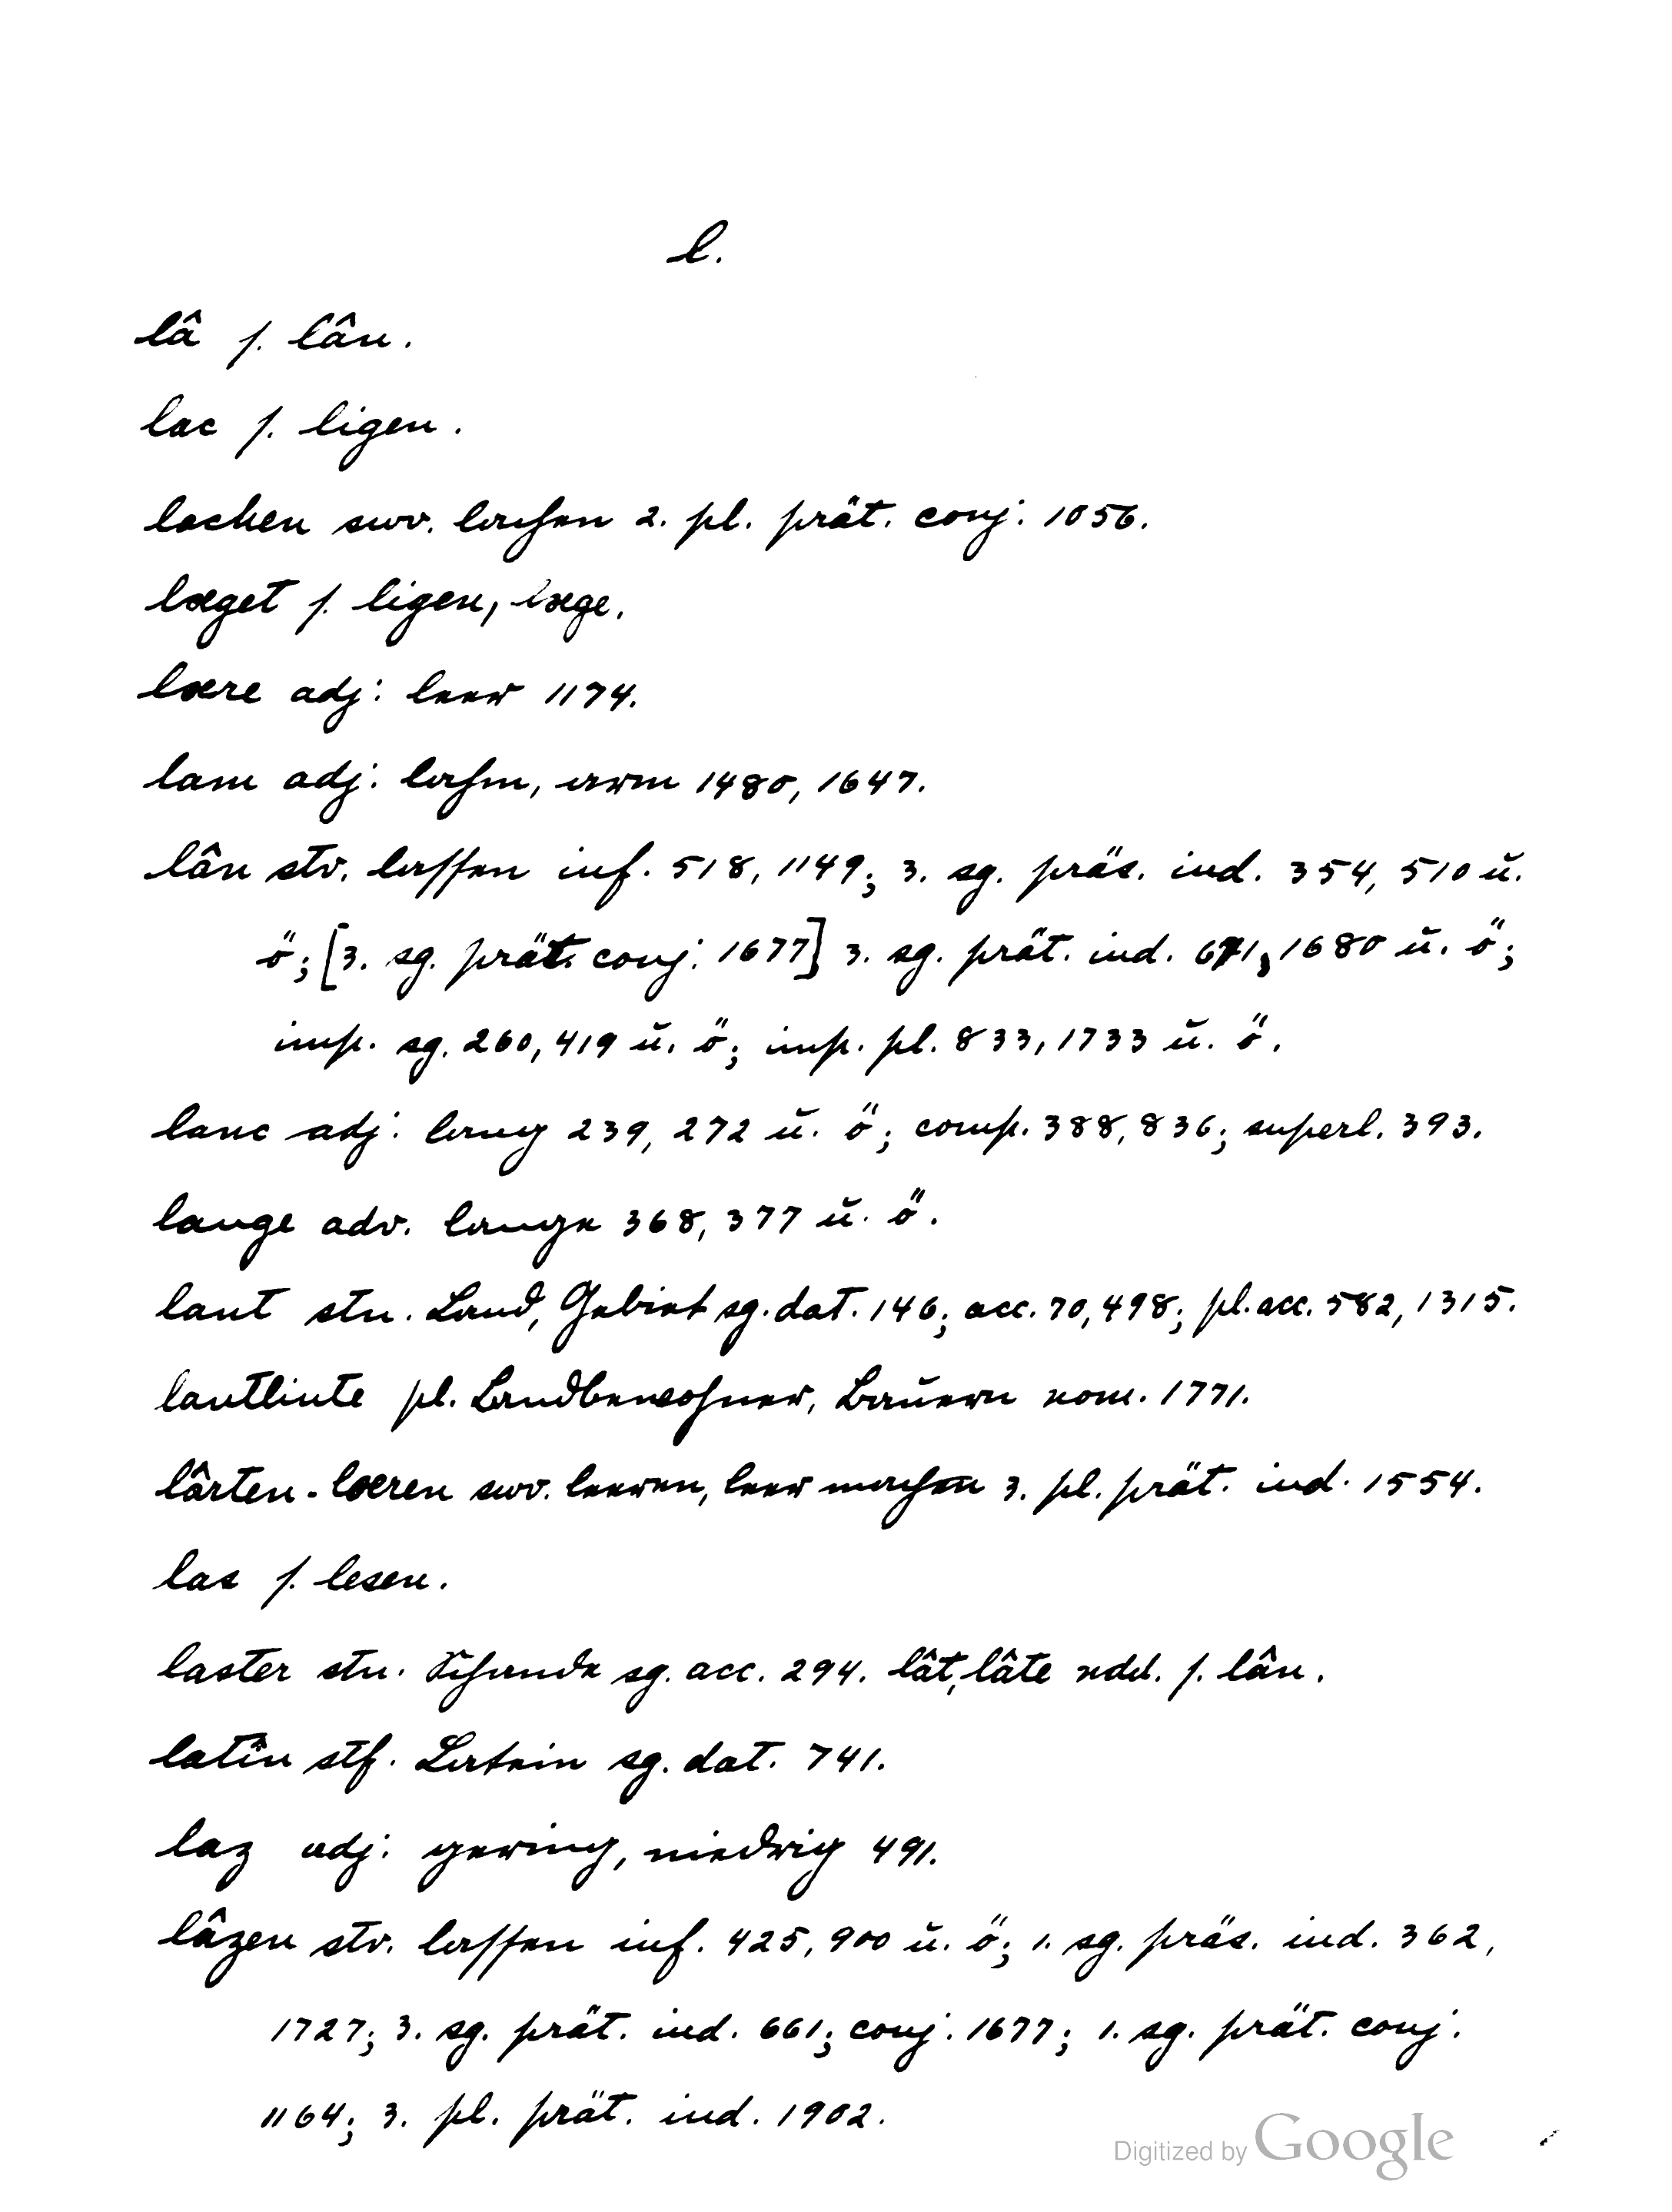 l.
lâ s. lân.
lac s. ligen.
lachen swv. lachen 2. pl. prät. conj. 1056.
læget s. ligen, læge.
lære adj. leer 1174.
lam adj. lahm, arm 1480, 1647.
lân stv. lassen inf. 518, 1149; 3. sg. präs. ind. 354, 510 u.
ö; [3. sg. prät. conj. 1677] 3. sg. prät. ind. 671, 1680 u. ö;
imp. sg. 260, 419 u. ö; imp. pl. 833, 1733 u. ö.
lanc adj. lang 239, 272 u. ö; comp. 388, 836; superl. 393.
lange adv. lange 368, 377 u. ö.
lant stn. Land, Gebiet sg. dat. 146; acc. 70, 498; pl. acc. 582, 1315.
lantliute pl. Landbewohner, Bauern nom. 1771.
lârten - læren swv. leeren, leer machen 3. pl. prät. ind. 1554.
las s. lesen.
laster stn. Schande sg. acc. 294. lât, lâte ndd. s. lân.
latîn stf. Latein sg. dat. 741.
laz adj. gering, niedrig 491.
lâzen stv. lassen inf. 425, 900 u. ö; 1. sg. präs. ind. 362,
1727; 3. sg. prät. ind. 661; conj. 1677; 1. sg. prät. conj.
1164; 3. pl. prät. ind. 1902.
Digitized by Google